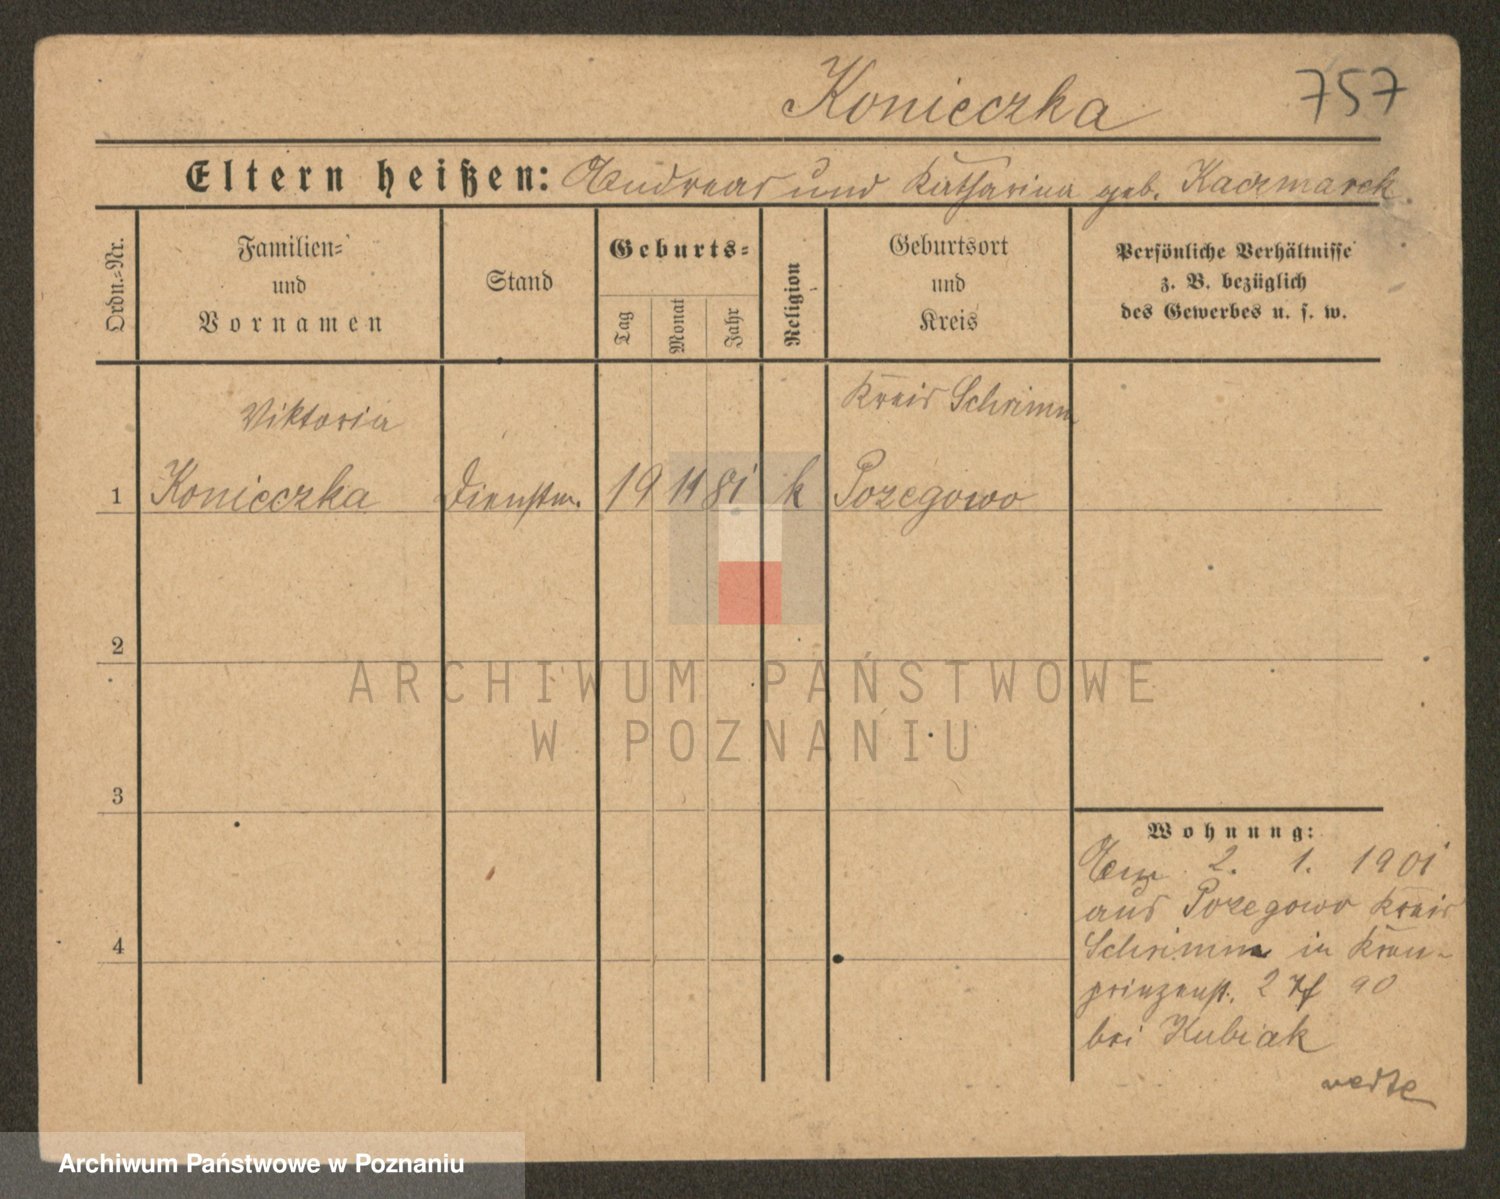 Konieczka 757
Eltern heißen: Andreas und Katharina geb. Kaczmarek
Ordn.-Nr.
Familien-
und
Vornamen
Stand
Geburts-
Tag
Monat
Jahr
Religion
Geburtsort
und
Kreis
Persönliche Verhältnisse
z. B. bezüglich
des Gewerbes u. s. w.
Viktoria
Kreis Schrimm
1 Konieczka Dienstm. 19 11 81 k Pozegowo
2
ARCHIWUM PAŃSTWOWE
W POZNANIU
3
4
Wohnung:
2. 1. 1901
aus Pozegowo Kreis
Schrimm in Kron-
prinzenst. 90
bei Kubiak
verte
Archiwum Państwowe w Poznaniu